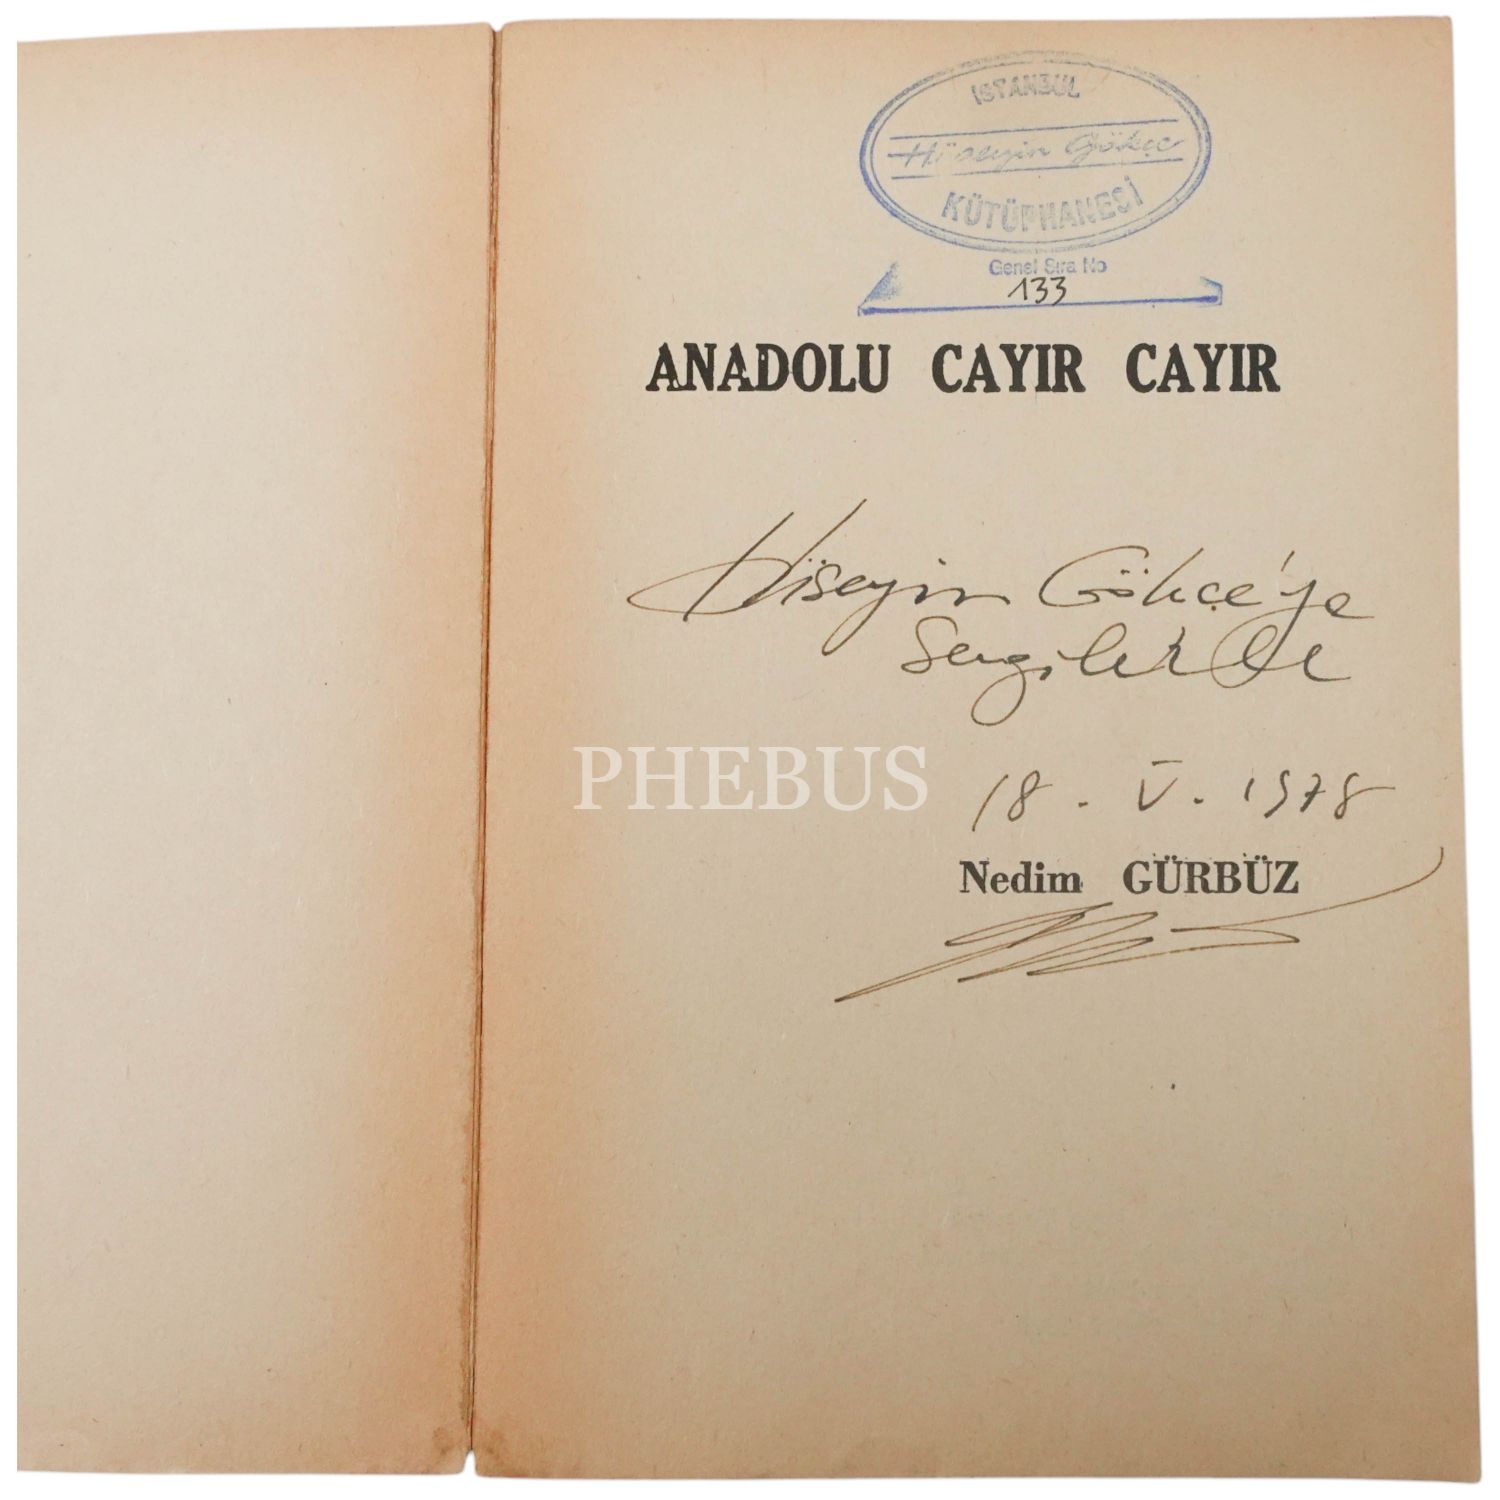 İSTANBUL
Hüseyin Gökçe
KÜTÜPHANESİ
Genel Sıra No
133
ANADOLU CAYIR CAYIR
Hüseyin Gökçe'ye
Sevgilerle
PHEBUS
18. V. 1978
Nedim GÜRBÜZ